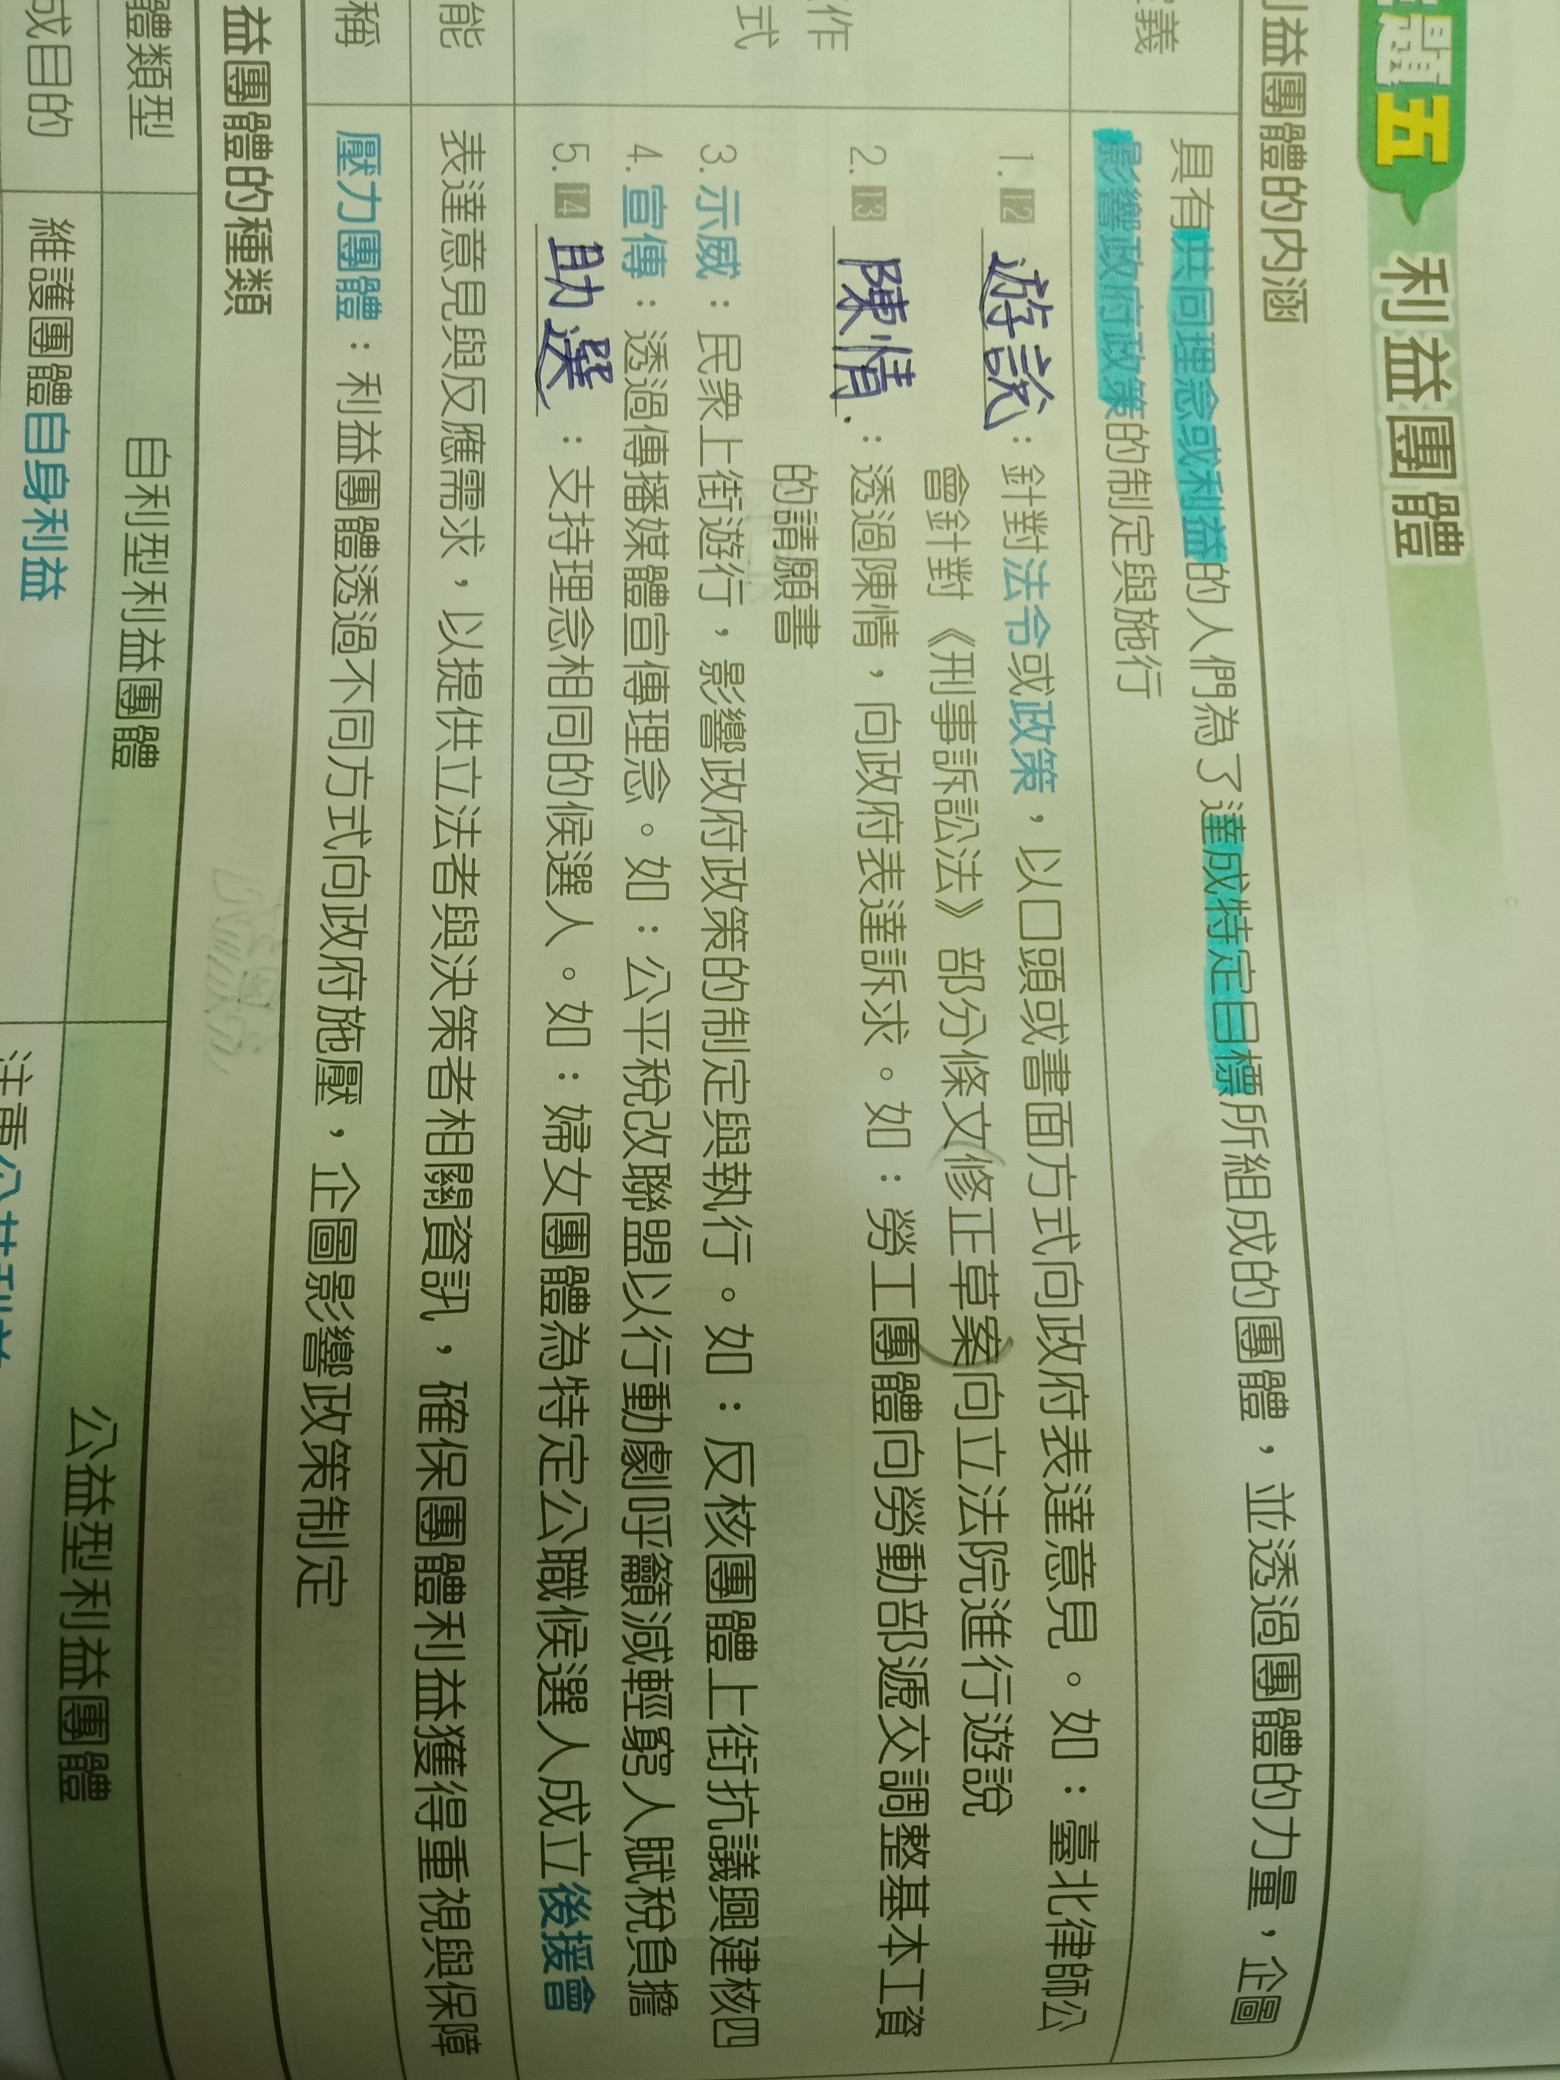 五 利益團體
益團體的內涵
義
具有共同理念或利益的人們為了達成特定目標所組成的團體，並透過團體的力量，企圖
影響政府政策的制定與施行
作
式
1. 12 遊說：針對法令或政策，以口頭或書面方式向政府表達意見。如：臺北律師公
會針對《刑事訴訟法》部分條文修正草案向立法院進行遊說
2. 13 陳情：透過陳情，向政府表達訴求。如：勞工團體向勞動部遞交調整基本工資
的請願書
3. 示威：民眾上街遊行，影響政府政策的制定與執行。如：反核團體上街抗議興建核四
4. 宣傳：透過傳播媒體宣傳理念。如：公平稅改聯盟以行動劇呼籲減輕窮人賦稅負擔
5. 14 助選：支持理念相同的候選人。如：婦女團體為特定公職候選人成立後援會
能
表達意見與反應需求，以提供立法者與決策者相關資訊，確保團體利益獲得重視與保障
稱
壓力團體：利益團體透過不同方式向政府施壓，企圖影響政策制定
益團體的種類
體類型 自利型利益團體 公益型利益團體
成目的 維護團體自身利益 注重公共利益